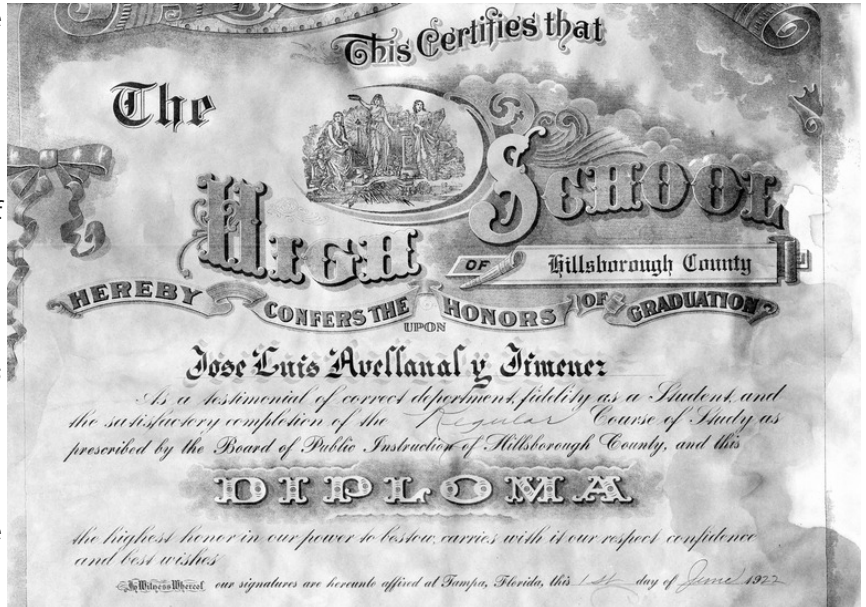 This Certifies that
The
High School
OF Hillsborough County
HEREBY CONFERS THE HONORS OF GRADUATION
UPON
Jose Luis Avellanal y Jimenez
As a testimonial of correct deportment, fidelity as a Student, and
the satisfactory completion of the Regular Course of Study as
prescribed by the Board of Public Instruction of Hillsborough County, and this
DIPLOMA
the highest honor in our power to bestow, carries with it our respect confidence
and best wishes
In Witness Whereof our signatures are hereunto affixed at Tampa, Florida, this 1st day of June 1922